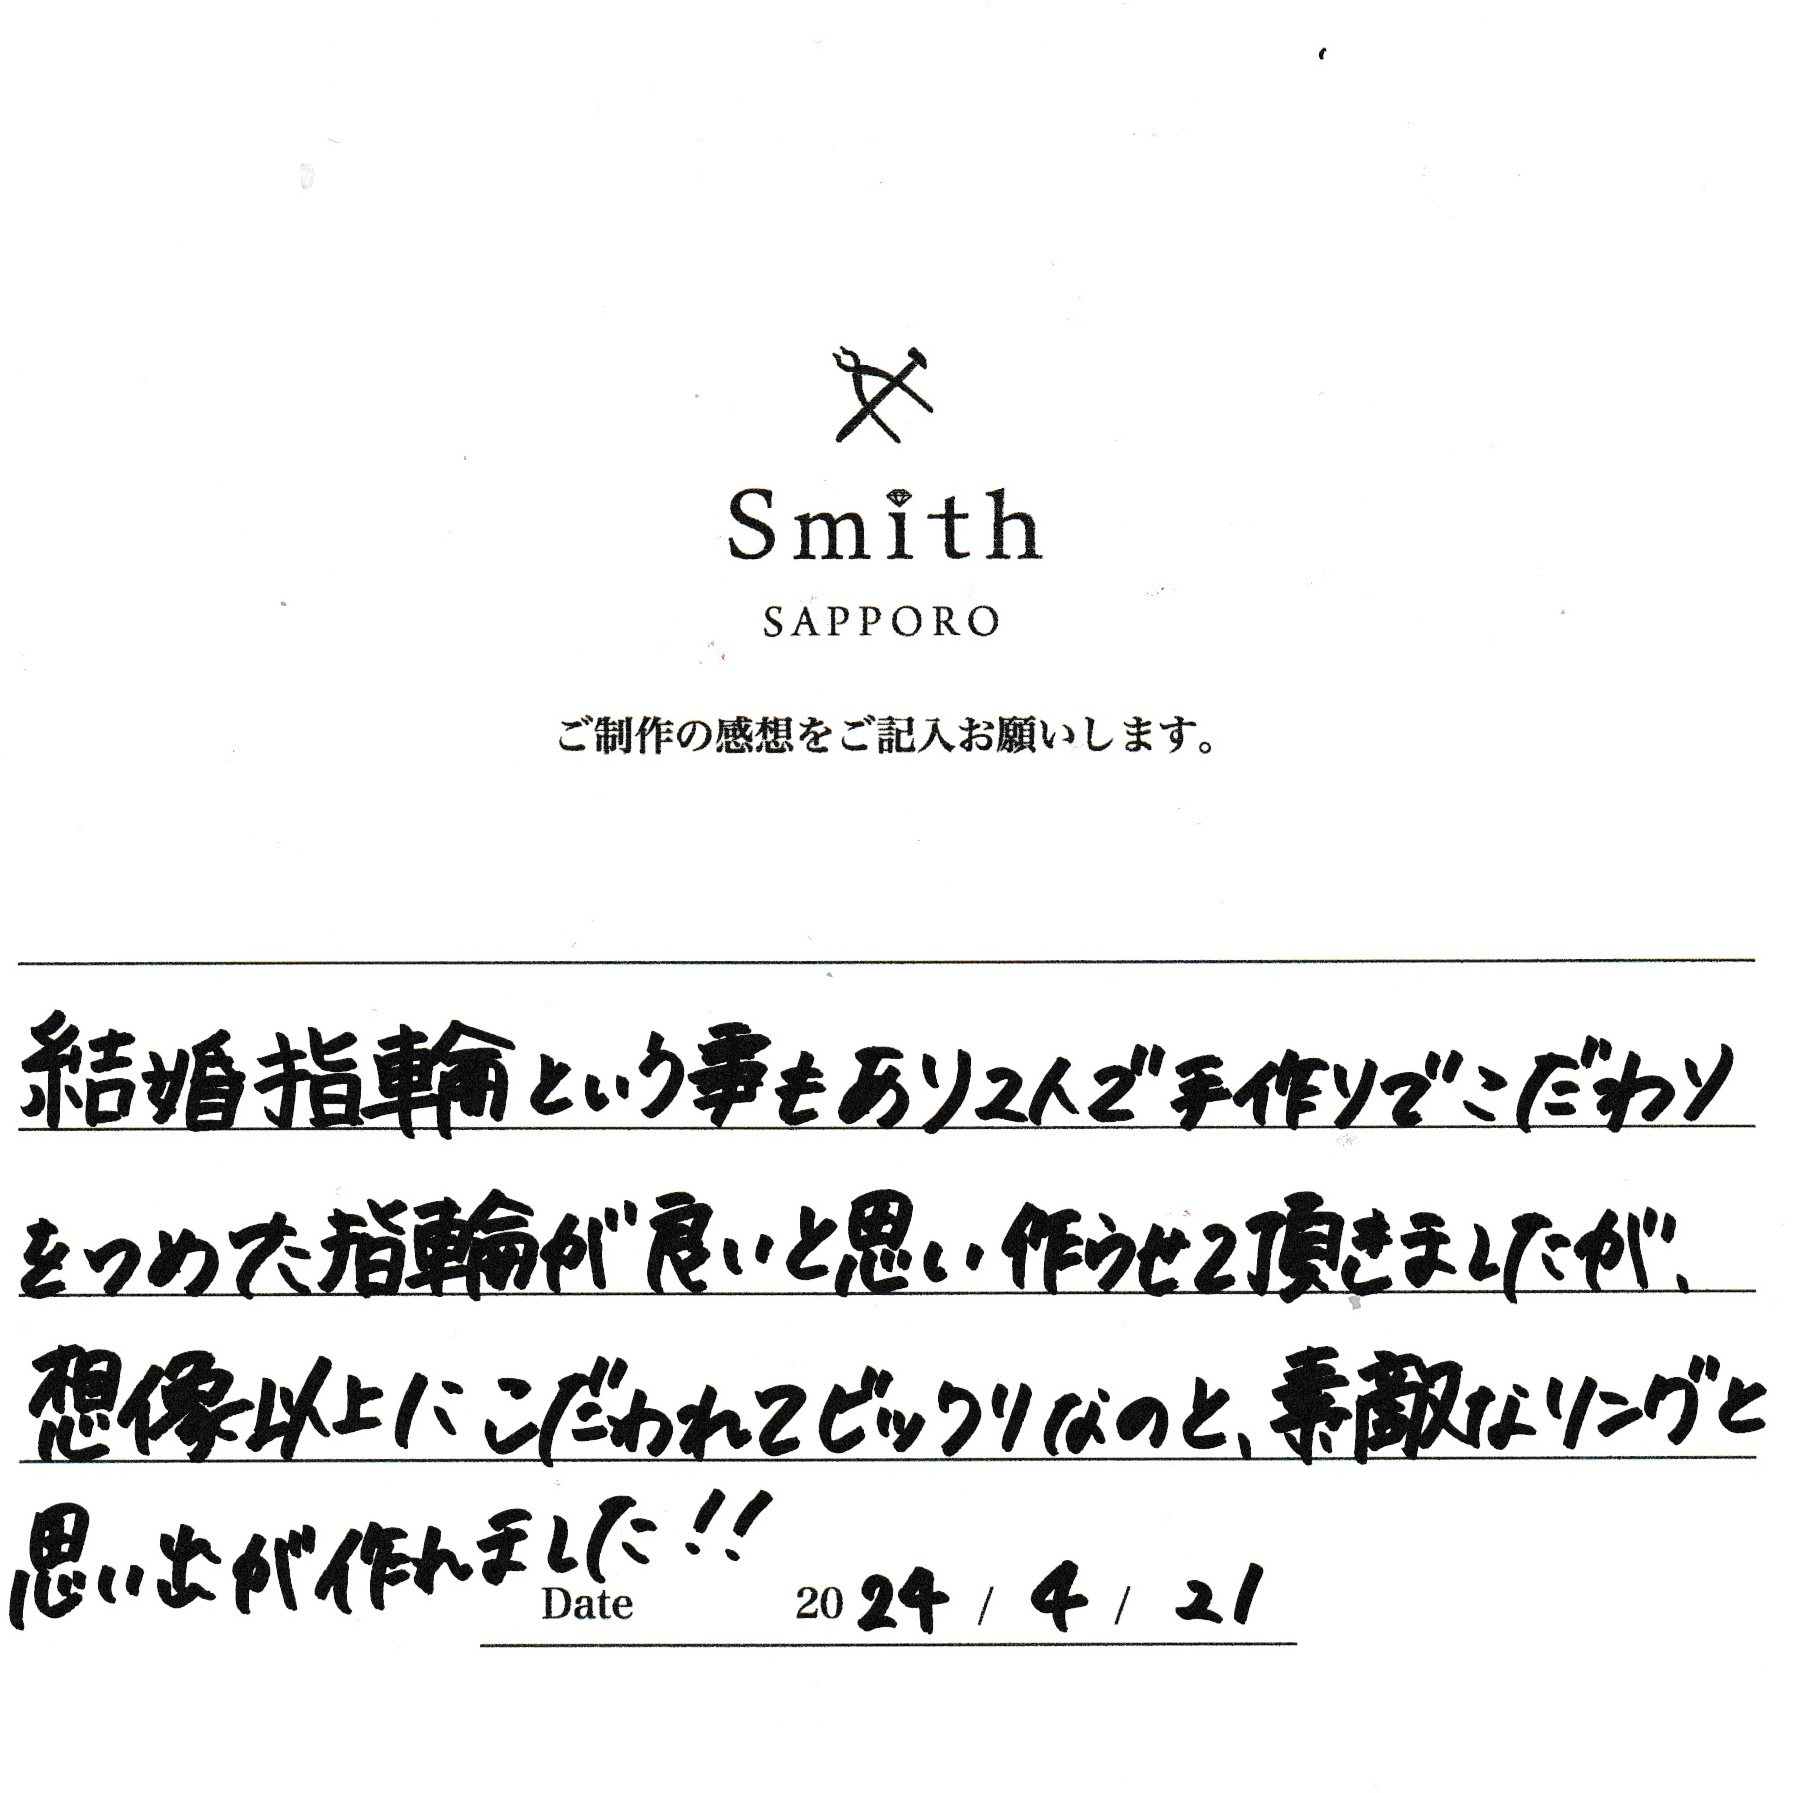 Smith
SAPPORO
ご制作の感想をご記入お願いします。
結婚指輪という事もあり2人で手作りでこだわり
をつめた指輪が良いと思い作らせて頂きましたが、
想像以上にこだわれてビックリなのと、素敵なリングと
思い出が作れました!!
Date 2024 / 4 / 21